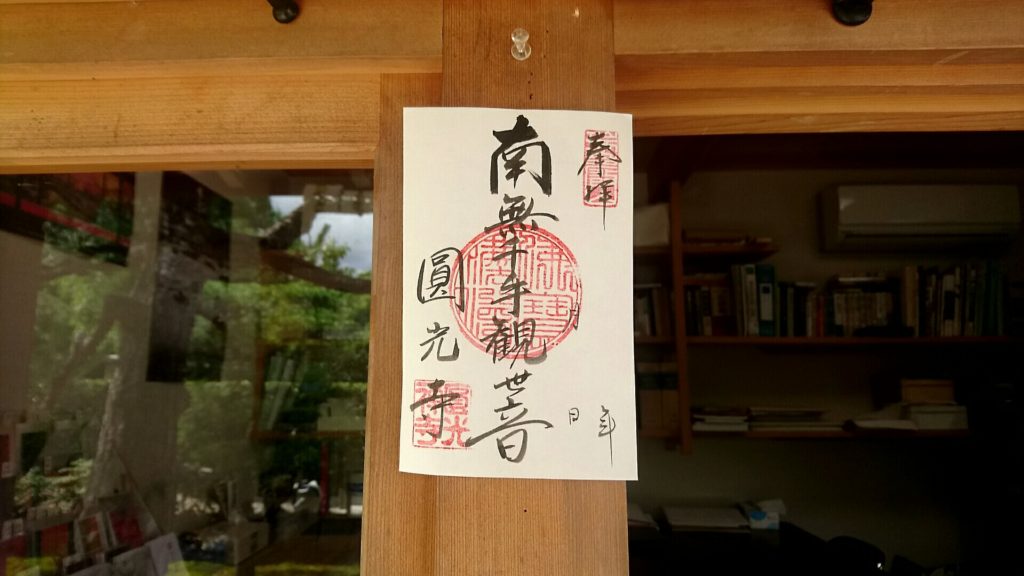 奉拝
年
月
日
南無千手観世音
圓光寺